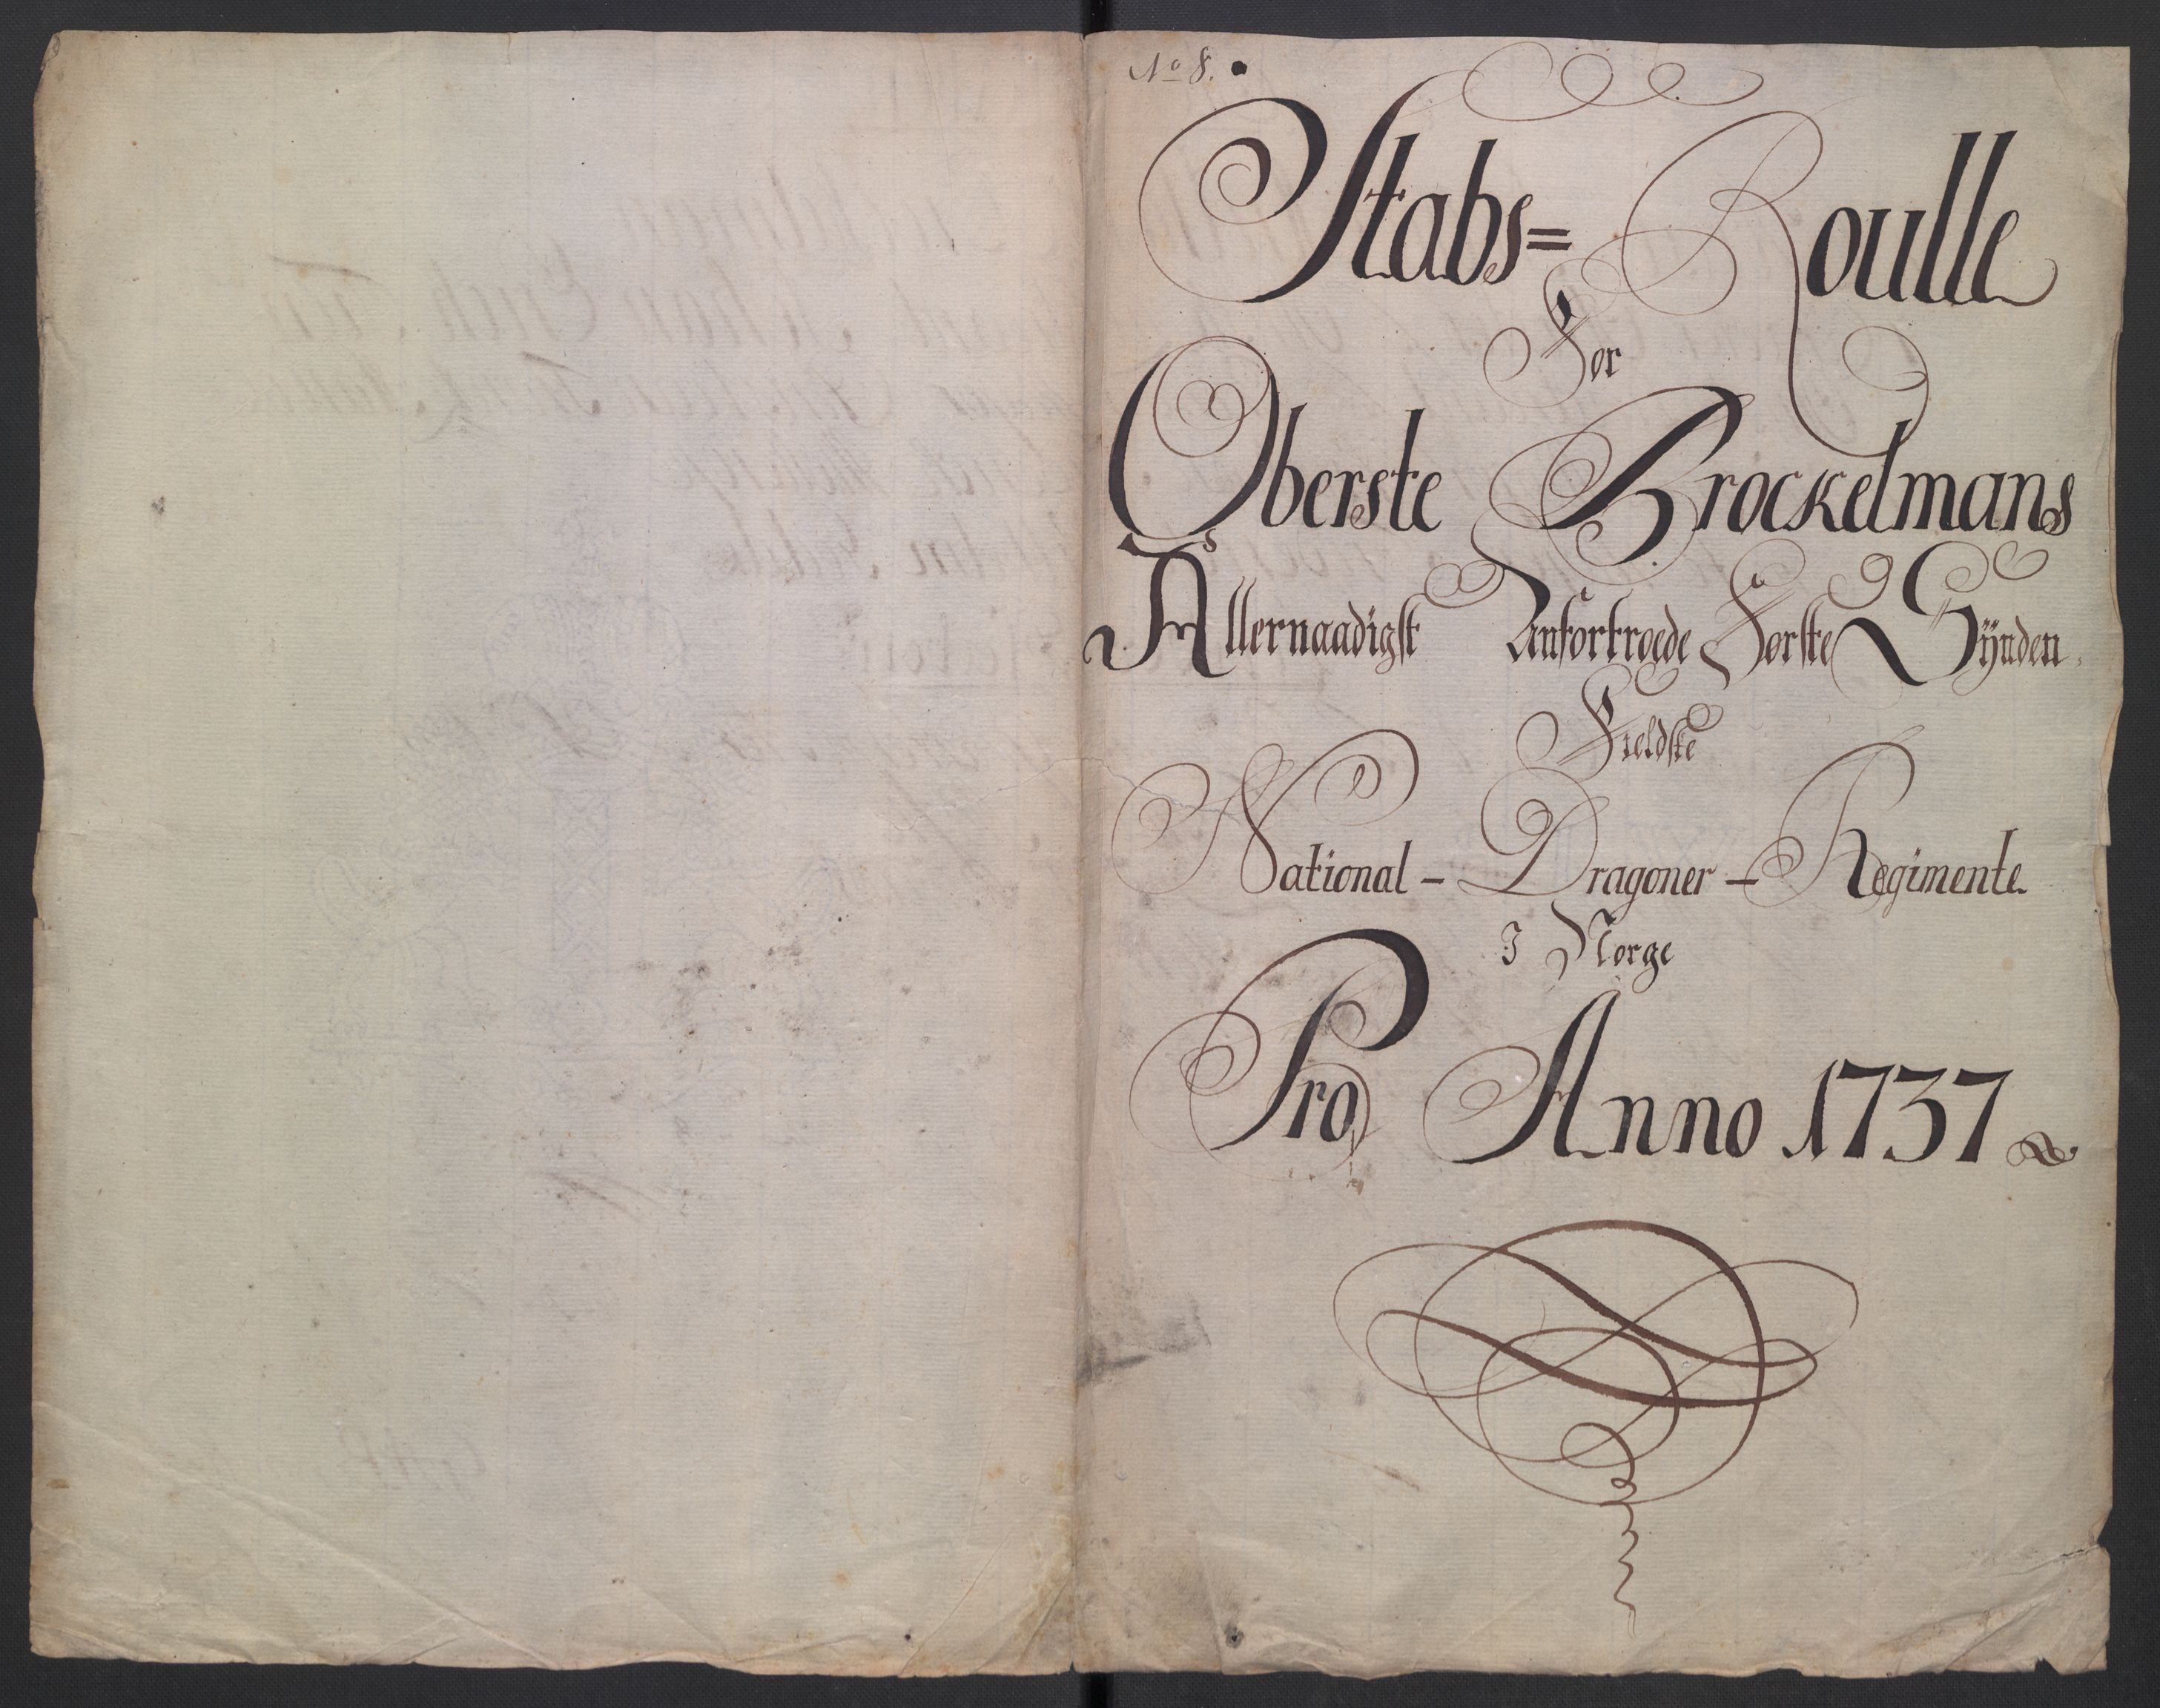 No 8.
Stabs= Roulle
For
Oberste Brockelmans
Allernaadigst Anfortroede Første Synden,
Fieldske
National - Dragoner - Regimente
I Norge
Pro Anno 1737